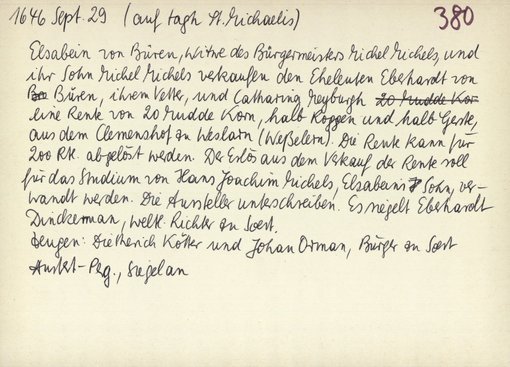 1646 Sept. 29 (auf tagh St. Michaelis) 380
Elsabein von Büren, Witwe des Bürgermeisters Michel Michels, und
ihr Sohn Michel Michels verkaufen den Eheleuten Eberhardt von
Büren, ihrem Vetter, und Catharina Meyburgh 20 Mudde Kor
eine Rente von 20 Mudde Korn, halb Roggen und halb Gerste,
aus dem Clemenshof zu Weslarn (Weßelern). Die Rente kann für
200 Rtl. abgelöst werden. Der Erlös aus dem Verkauf der Rente soll
für das Studium von Hans Joachim Michels, Elsabeins Sohn, ver-
wandt werden. Die Aussteller unterschreiben. Es siegelt Eberhardt
Dinckerman, weltl. Richter zu Soest.
Zeugen: Dietherich Kötter und Johan Orman, Bürger zu Soest
Ausf.-Perg., Siegel an